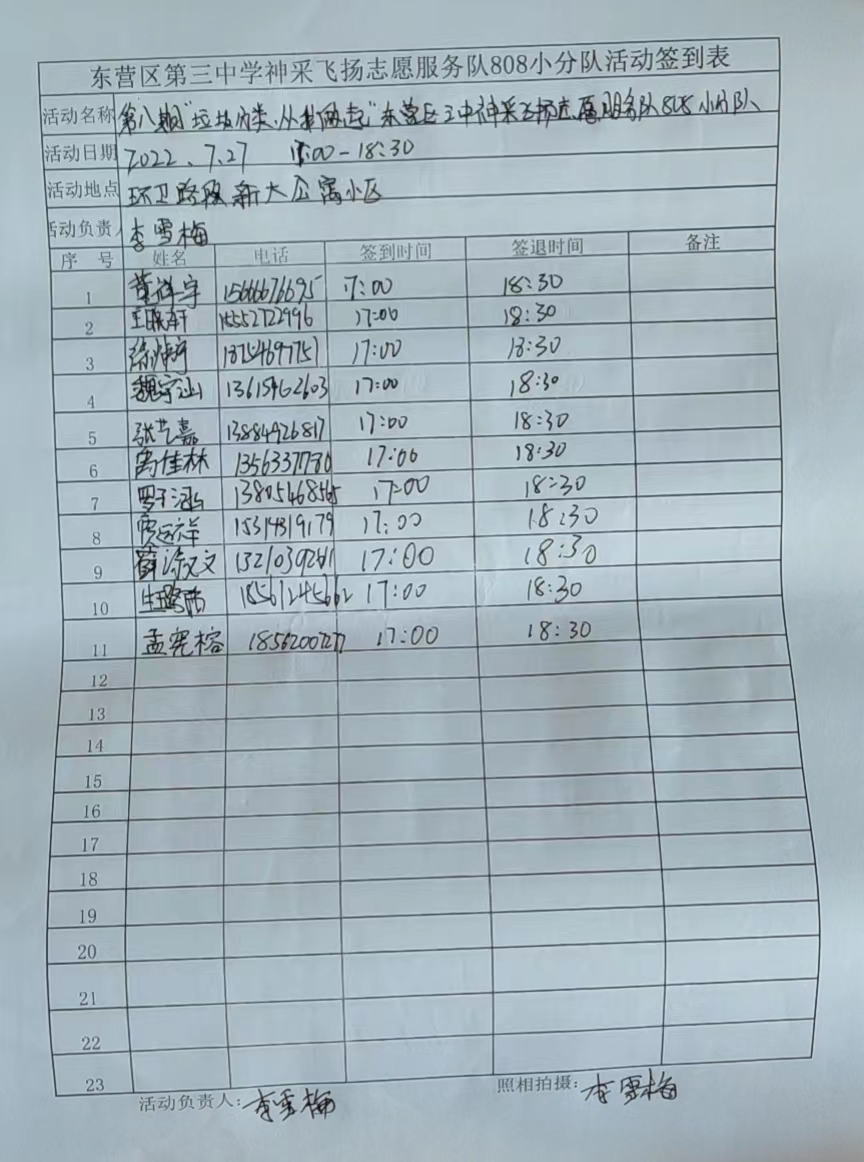 东营区第三中学神采飞扬志愿服务队808小分队活动签到表
活动名称 第八期"垃圾分类,从我做起"东营区三中神采飞扬志愿服务队808小分队
活动日期 2022.7.27 17:00-18:30
活动地点 环卫路段新大公寓小区
活动负责人 李雪梅
序 号 姓名 电话 签到时间 签退时间 备注
1 董祥宇 15666676695 17:00 18:30
2 15552722996 17:00 18:30
3 18754697751 17:00 18:30
4 魏宇涵 13615462603 17:00 18:30
5 张艺嘉 13884926817 17:00 18:30
6 高佳林 17:00 18:30
7 罗子涵 17:00 18:30
8 15314319179 17:00 18:30
9 薛涂文 17:00 18:30
10 18561245662 17:00 18:30
11 孟宪榕 17:00 18:30
12
13
14
15
16
17
18
19
20
21
22
23
活动负责人: 李雪梅 照相拍摄: 李雪梅